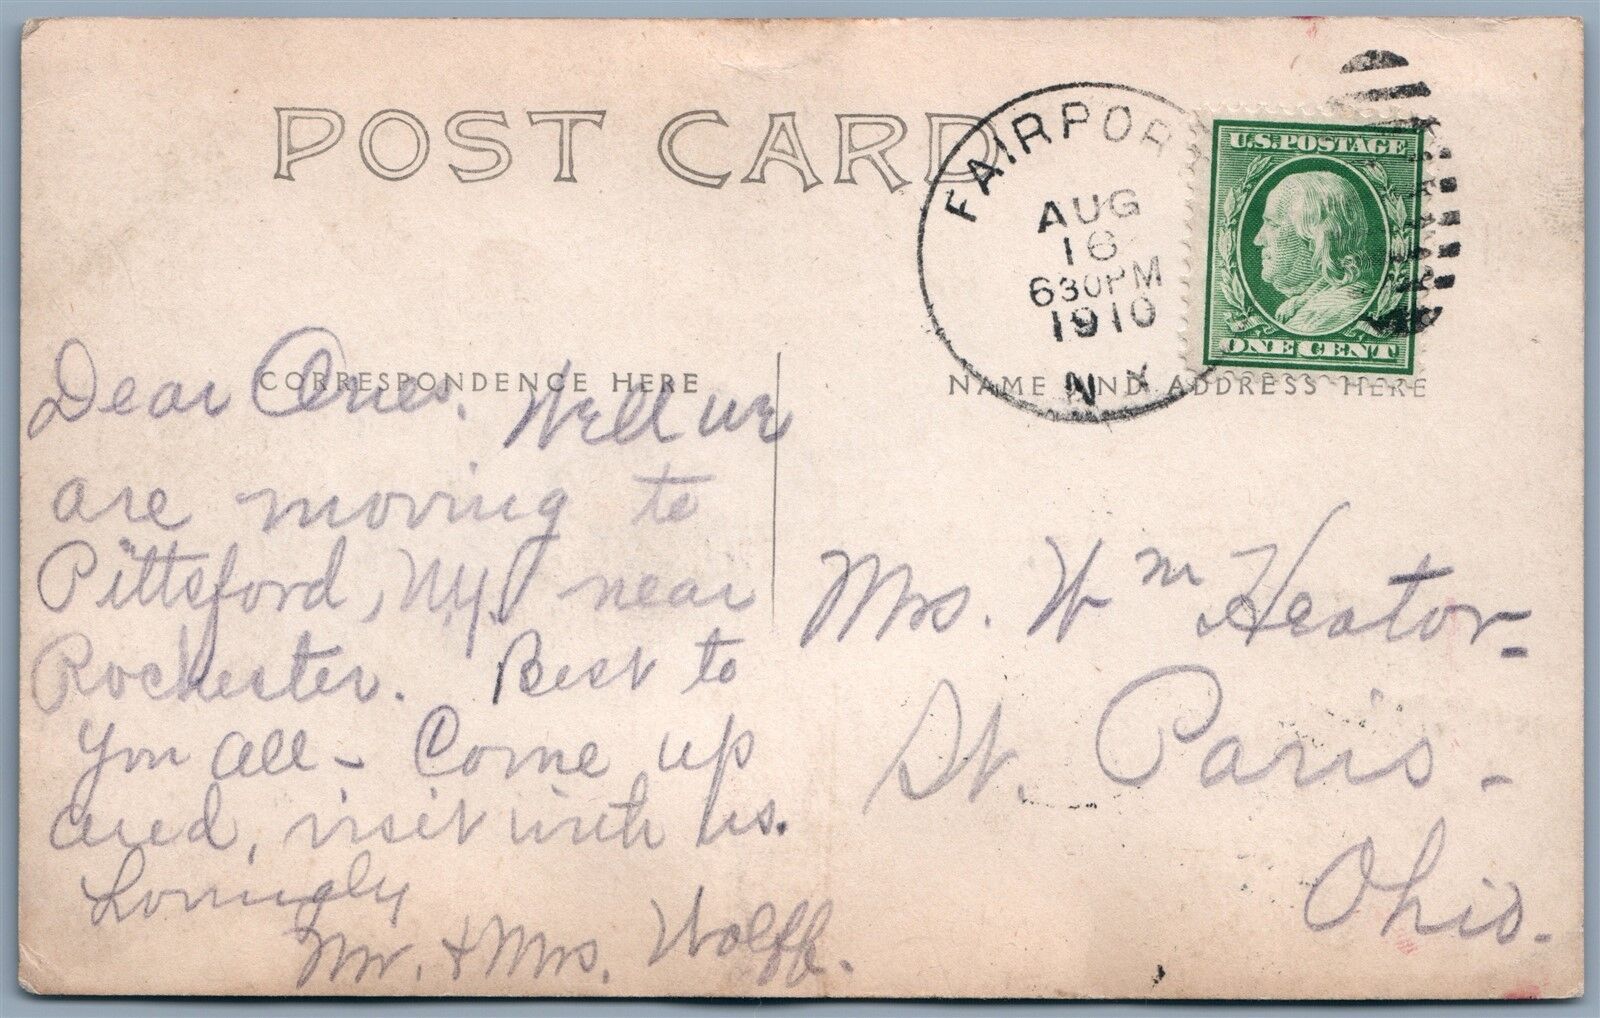 POST CARD
FAIRPORT
AUG
16
630PM
1910
N Y
U.S. POSTAGE
ONE CENT
CORRESPONDENCE HERE
NAME AND ADDRESS HERE
Dear Ones. Well we
are moving to
Pittsford, N.Y. near
Rochester. Best to
you all - Come up
and, visit with us.
Lovingly
Mr. & Mrs. Wolff.
Mrs. Wm Heator -
St. Paris -
Ohio.